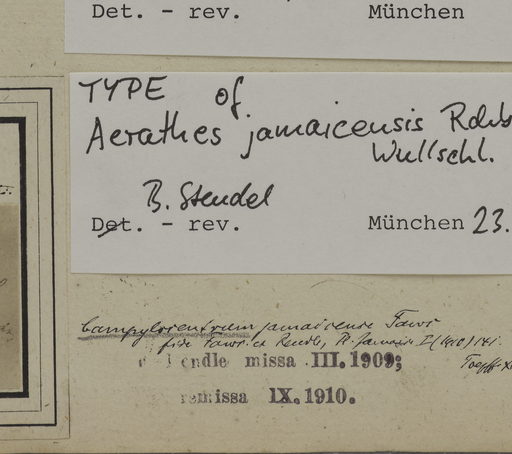 Det. - rev. München
TYPE of
Aerathes jamaicensis Rchb
Wullschl.
B. Stendel
Det. - rev. München 23.
Campylocentrum jamaicense Fawc
fide Fawc. et Rendle, Fl. Jamaic I (1910) 141.
Rendle missa III. 1909;
remissa IX. 1910.